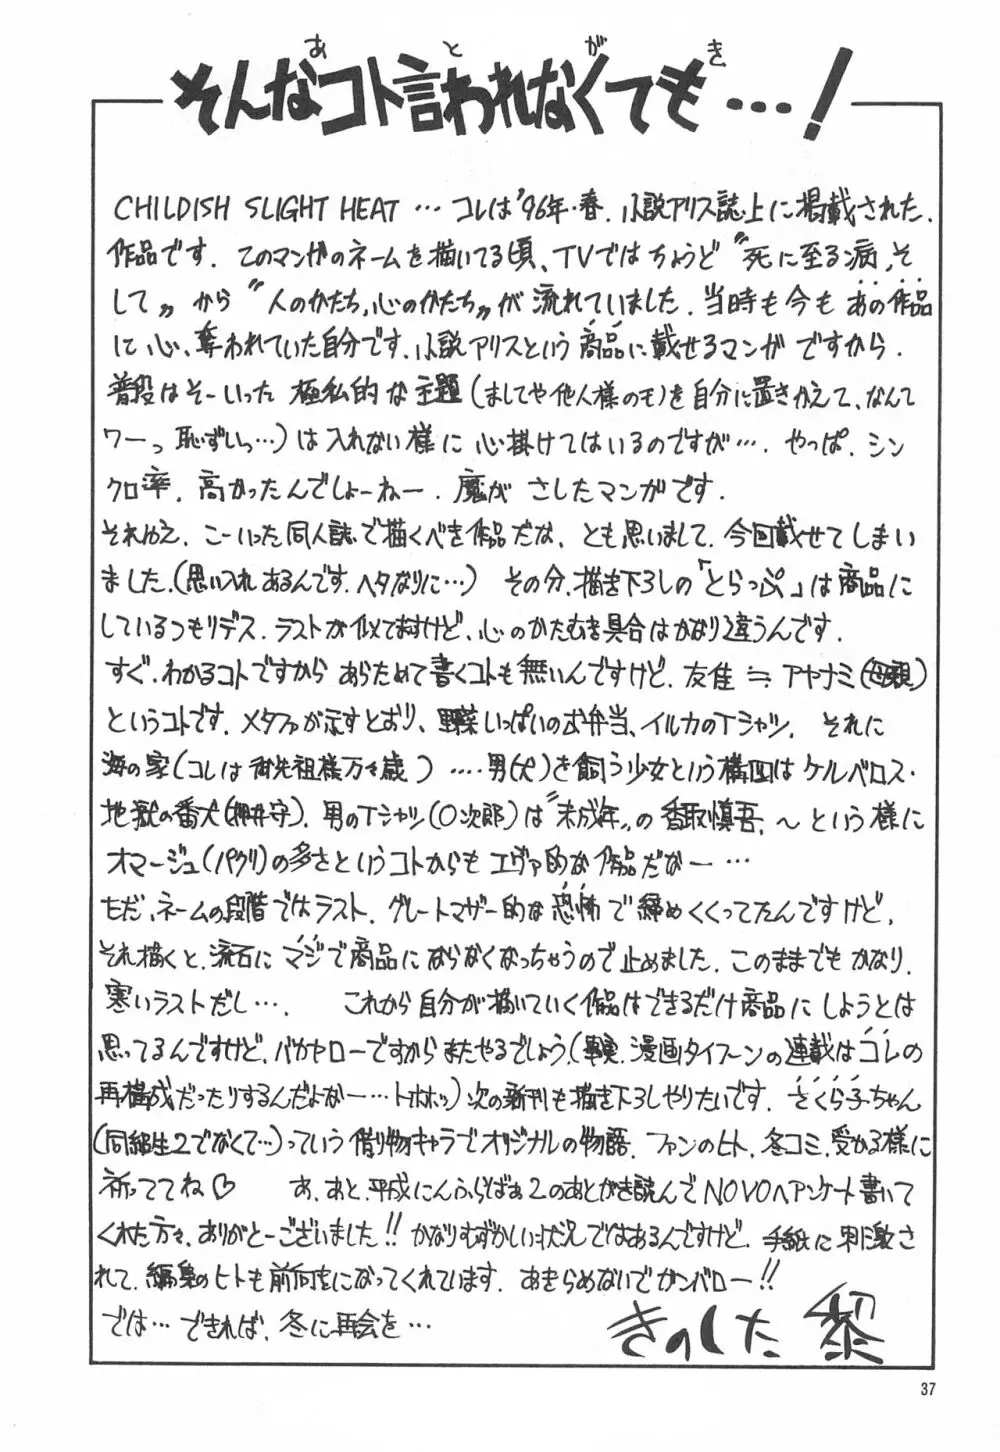 あとがき
そんなコト言われなくても…!
CHILDISH SLIGHT HEAT … コレは'96年・春、小説アリス誌上に掲載された、
作品です。このマンガのネームを描いてる頃、TVではちょうど〝死に至る病、そ
して〟から〝人のかたち、心のかたち〟が流れていました。当時も今もあの作品
に心、奪われていた自分です。小説アリスという商品に載せるマンガですから、
普段はそーいった極私的な主題(ましてや他人様のモノを自分に置きかえて、なんて
ワーっ恥ずいっ…)は入れない様に心掛けてはいるのですが…、やっぱ、シン
クロ率、高かったんでしょーねー、魔がさしたマンガです。
それゆえ、こーいった同人誌で描くべき作品だな、とも思いまして、今回載せてしまい
ました。(思い入れあるんです、ヘタなりに…) その分、描き下ろしの「とらっぷ」は商品に
しているつもりデス。ラストが似てますけど、心のかたむき具合はかなり違うんです。
すぐ、わかるコトですからあらためて書くコトも無いんですけど、友佳≒アヤナミ(母親)
というコトです。メタファが示すとおり、野菜いっぱいのお弁当、イルカのTシャツ、それに
海の家(コレは御先祖様万々歳)‥‥男(犬)を飼う少女という構図はケルベロス・
地獄の番犬(押井守)、男のTシャツ(○次郎)は〝未成年〟の香取慎吾、〜という様に
オマージュ(パクリ)の多さというコトからもエヴァ的な作品だなー…
ただ、ネームの段階ではラスト、グレートマザー的な恐怖で締めくくってたんですけど、
それ描くと、流石にマジで商品にならなくなっちゃうので止めました。このままでもかなり、
寒いラストだし…、 これから自分が描いていく作品はできるだけ商品にしようとは
思ってるんですけど、バカヤローですからまたやるでしょう、(事実、漫画タイフーンの連載はコレの
再構成だったりするんだよなー…トホホッ)次の新刊も描き下ろしやりたいです。さくら子ちゃん
(同級生2でなくて…)っていう借り物キャラでオリジナルの物語、ファンのヒト、冬コミ、受かる様に
祈っててね♡ あ、あと、平成にんふらばぁ2のあとがき読んでNOVOへアンケート書いて
くれた方々、ありがとーございました!! かなりむずかしい状況ではあるんですけど、手紙に刺激さ
れて、編集のヒトも前向きになってくれています。あきらめないでガンバロー!!
では… できれば、冬に再会を…
きのした黎
37